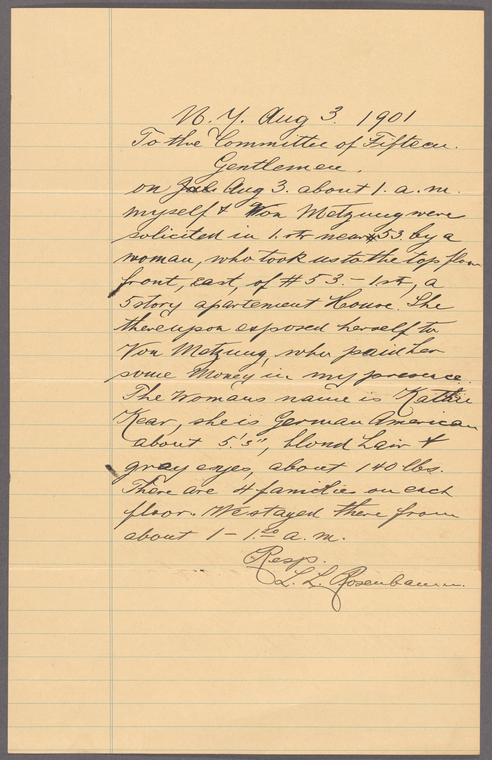 N. Y. Aug 3. 1901
To the Committee of Fifteen.
Gentlemen.
on Aug 3. about 1. a. m.
myself & Von Metzung were
solicited in 1. str near #53. by a
woman, who took us to the top floor
front, east, of #53. - 1 str, a
5 story apartement House. She
thereupon exposed herself to
Von Metzung, who paid her
some Money in my presence.
The Womans name is Kathie
Kear, she is German American
about 5'.3", blond hair &
grey eyes, about 140 lbs.
There are 4 families on each
floor. We stayed there from
about 1 - a. m.
Resp.
L. L. Rosenbaum.